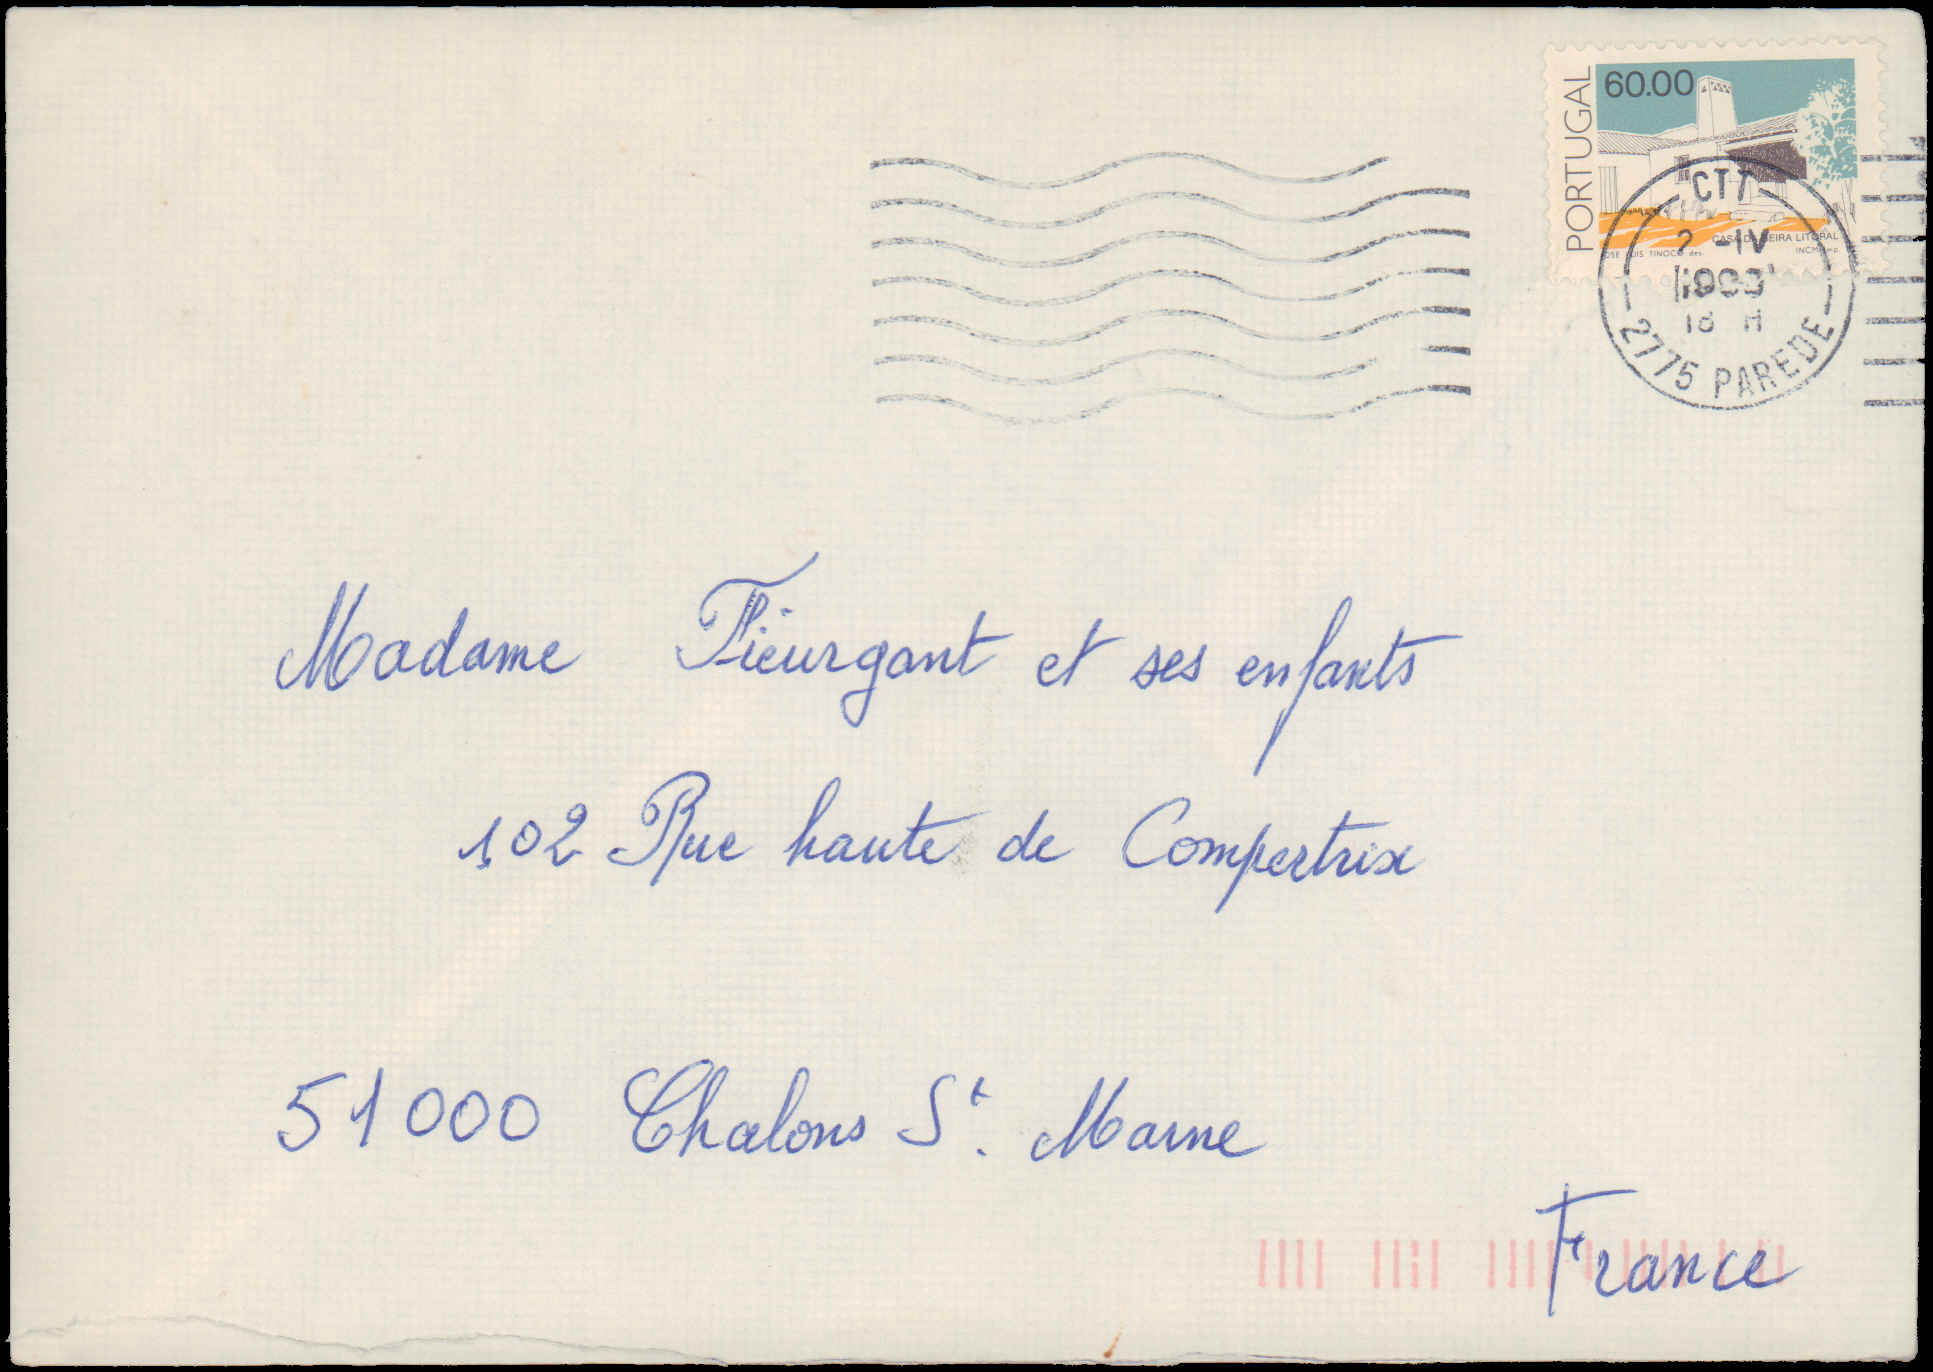 PORTUGAL
60.00
CASA DA BEIRA LITORAL
JOSÉ LUIS TINOCO des. INCM imp.
CTT
2 -IV
18 H
2775 PAREDE
Madame Fieurgant et ses enfants
102 Rue haute de Compertrix
51000 Chalons St. Marne
France